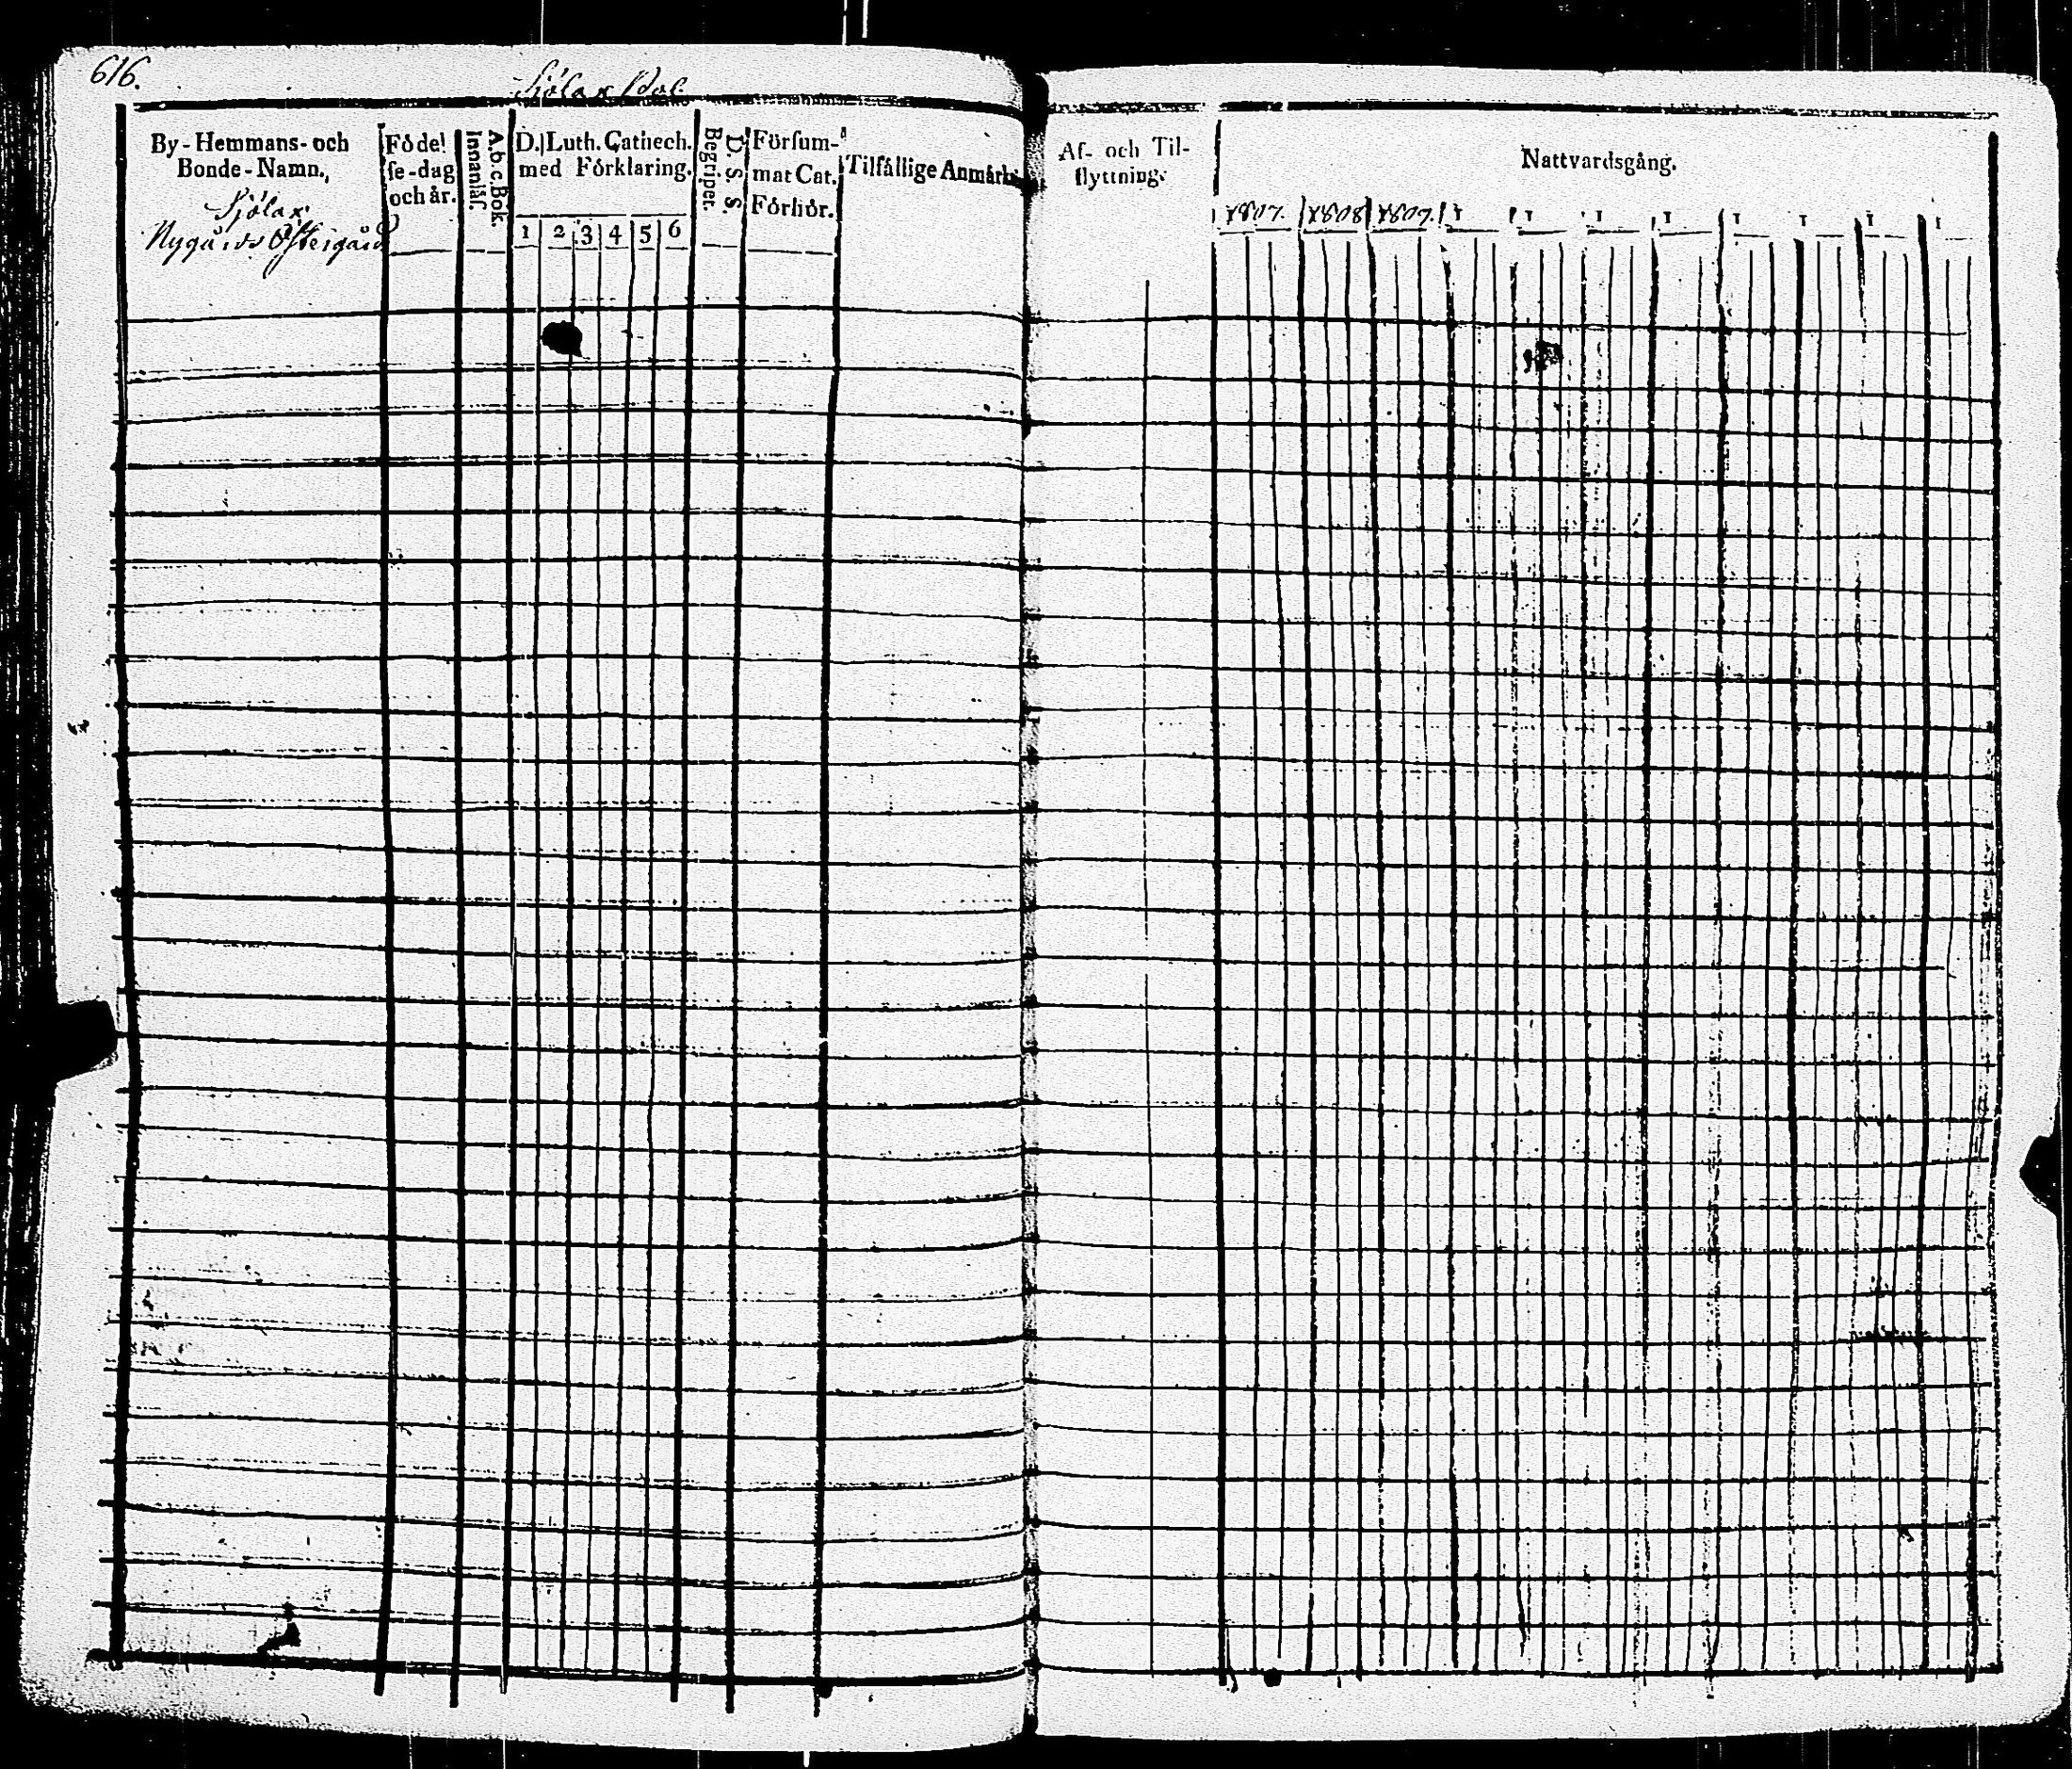 616.
Sjölax Bol
By-Hemmans-och
Bonde-Namn.
Sjölax
Nygårds Östergård
Födel
se-dag
och år.
A.b.c. Bok.
Innanläs.
D. Luth. Cathech.
med Förklaring.
1 2 3 4 5 6
D. S. S.
Begriper.
Försum-
mat Cat.
Förhör.
Tilfällige Anmärkn
Af- och Til-
flyttning.
Nattvardsgång.
1807. 1808 1809. 1 1 1 1 1 1 1 1